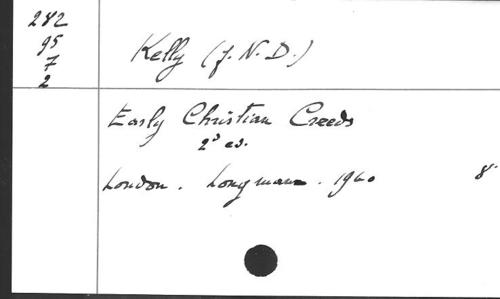 282
95
7
2
Kelly (J. N. D.)
Early Christian Creeds
2d ed.
London. Longmans. 1960
8°